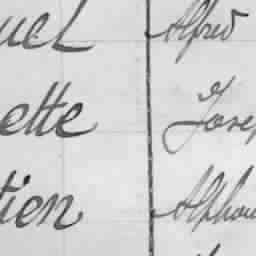 uel Alfred
ette Josep
tien Alphon